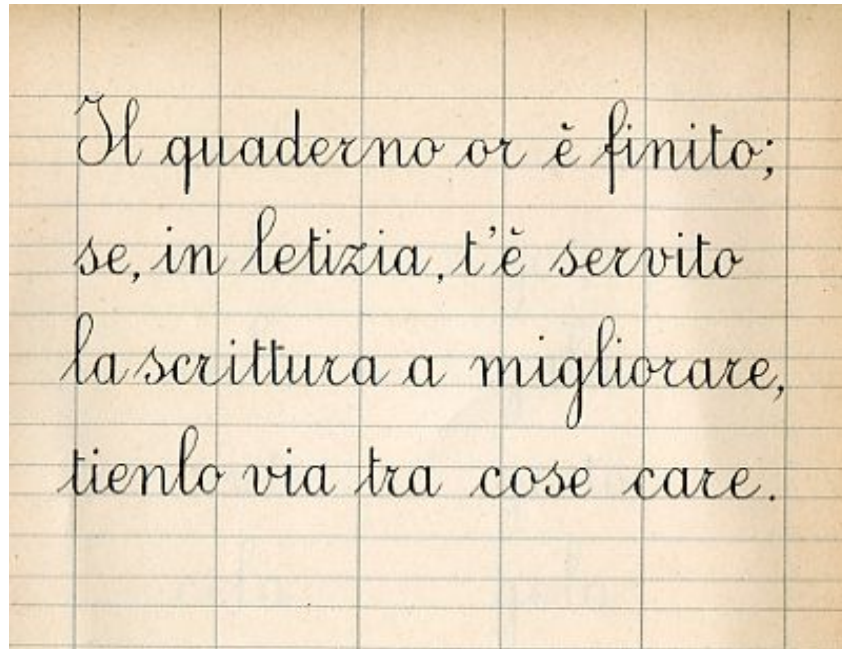 Il quaderno or è finito;
se, in letizia, t'è servito
la scrittura a migliorare,
tienlo via tra cose care.